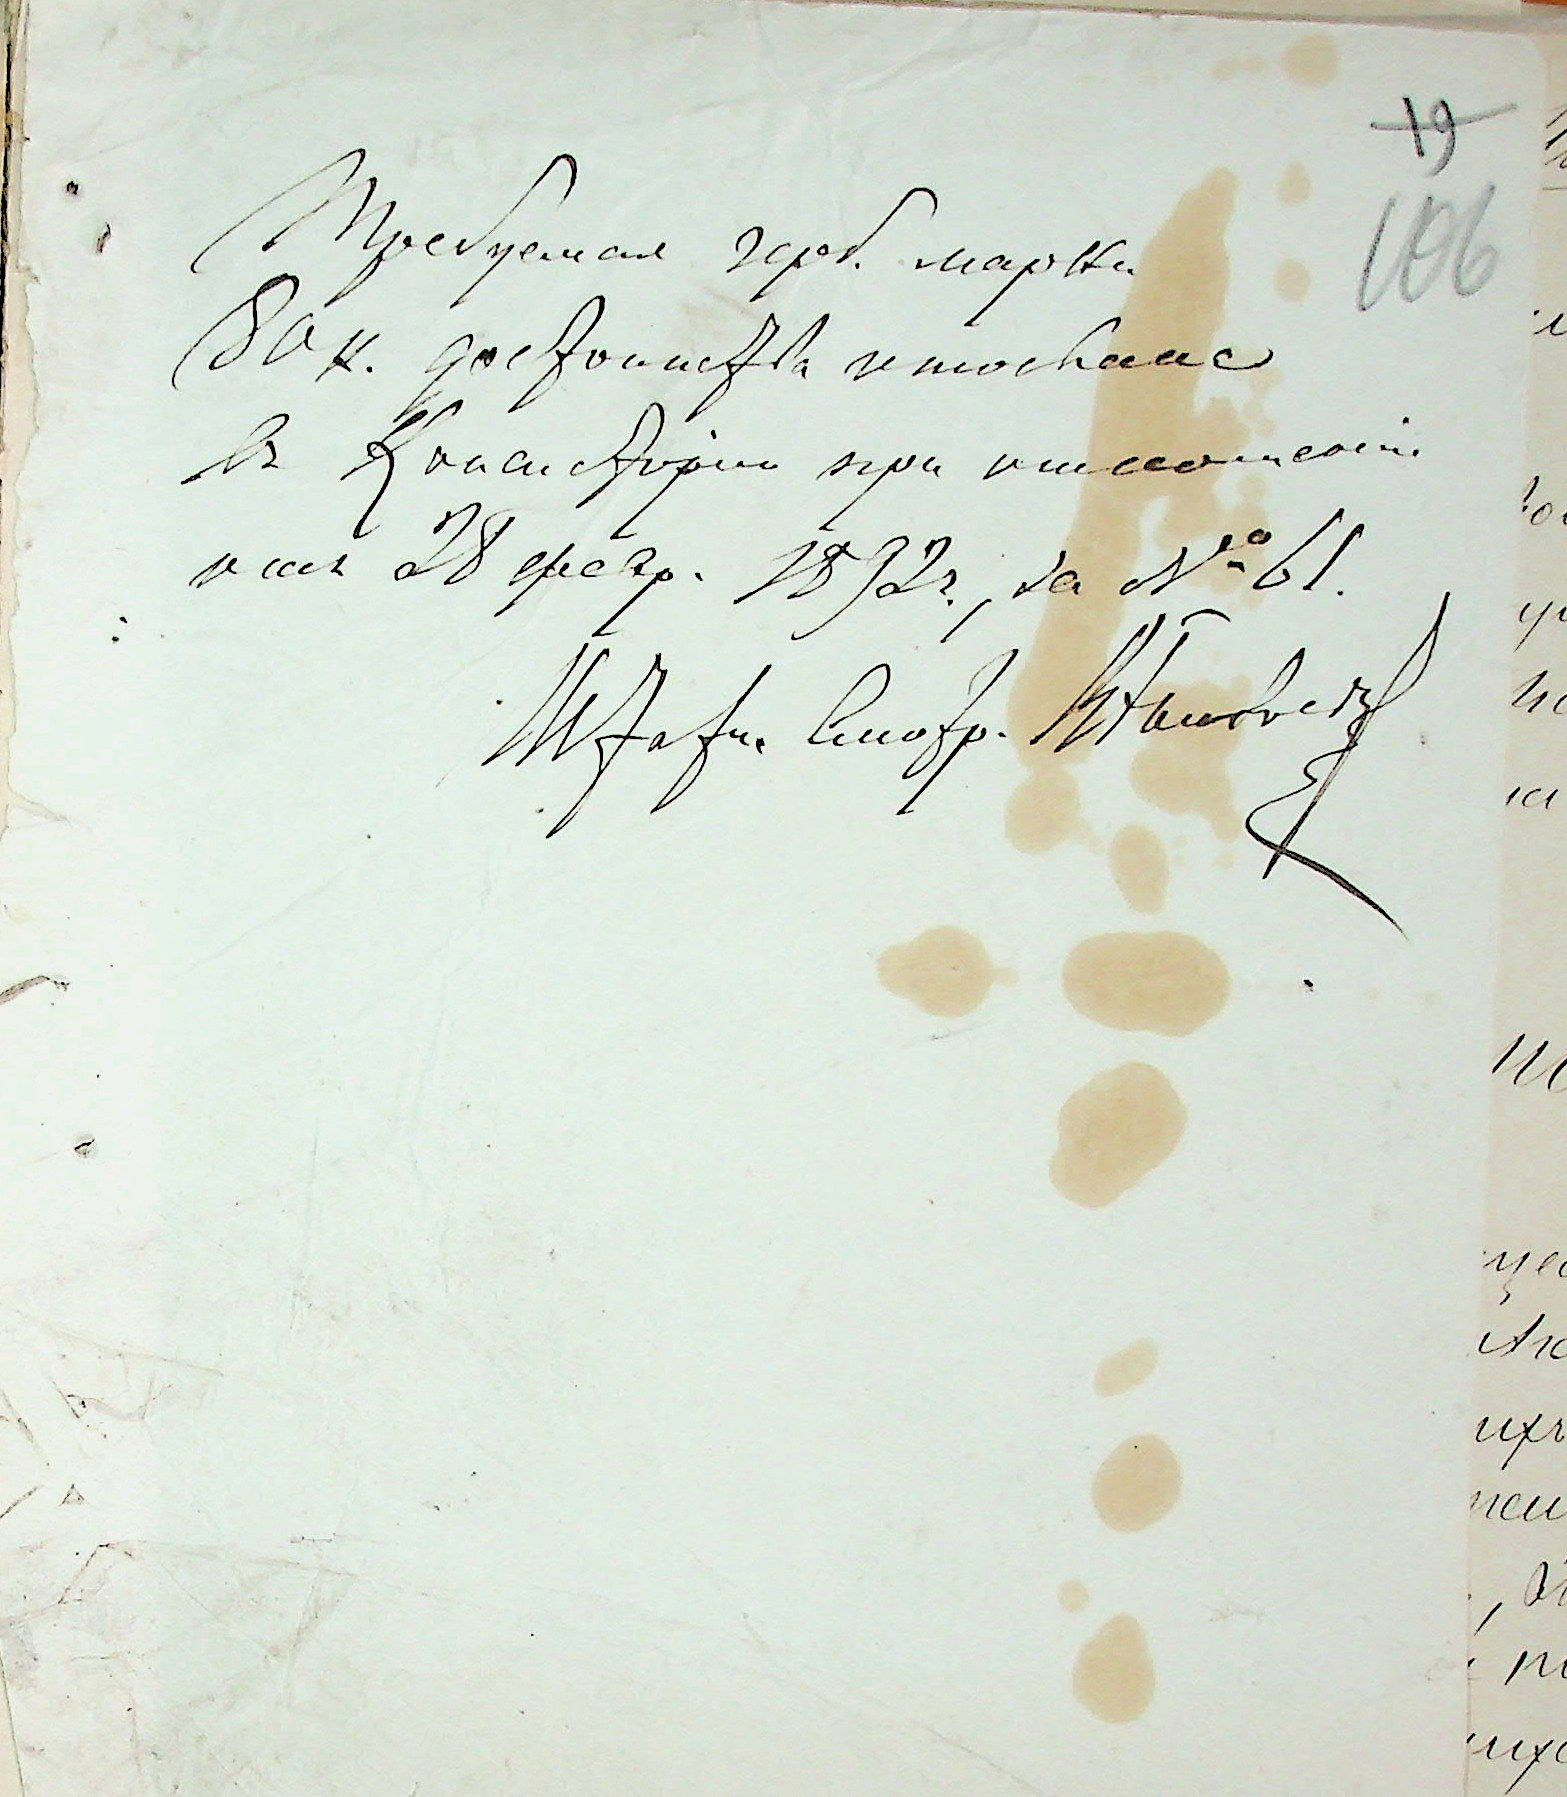 19
106
Требуемая герб. марка
80 к. достоинства отослана
въ Консисторію при отношеніи
отъ 28 февр. 1892 г., за № 61.
Штатн. Смотр.